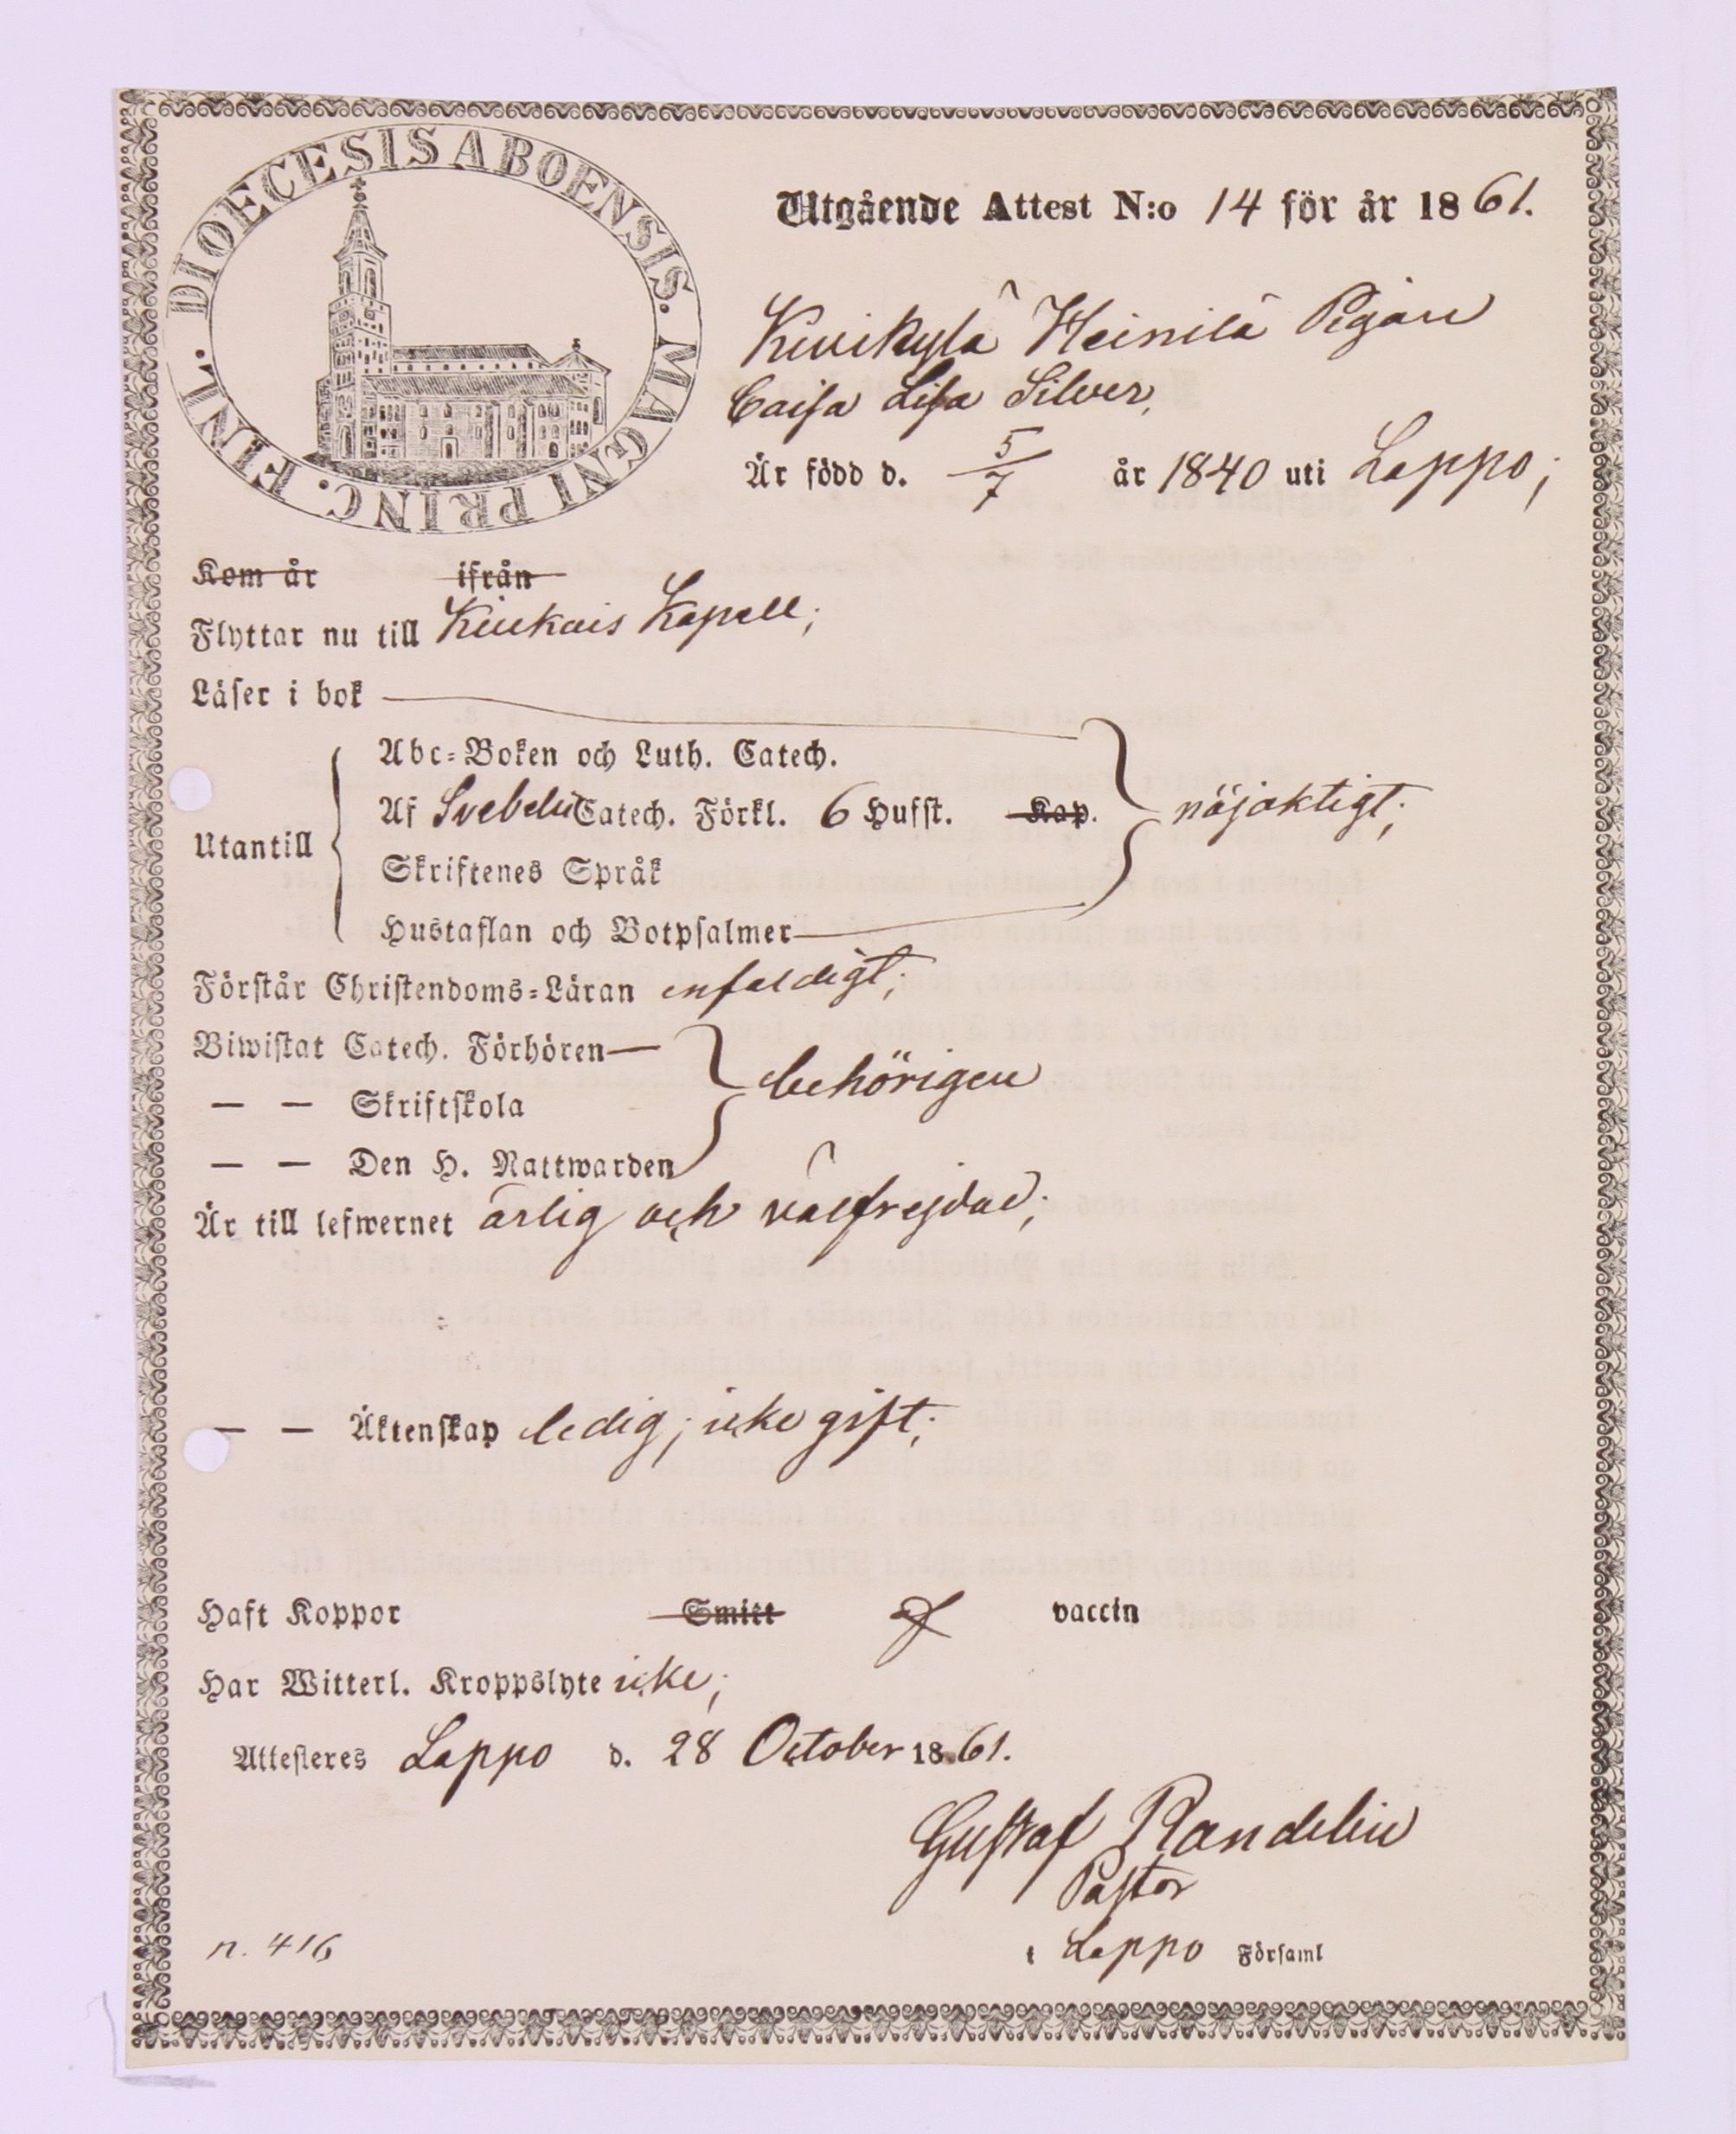 DIOECESIS ABOENSIS. MAGNI PRINC. FINL.
Utgående Attest N:o 14 för år 1861.
Kivikylä Heinilä Pigan
Caisa Lisa Silver,
Är född d. 5/7 år 1840 uti Lappo;
Kom år ifrån
Flyttar nu till Kiukais Kapell;
Läser i bok
Abc-Boken och Luth. Catech.
Af Svebelii Catech. Förkl. 6 Hufst. Kap. nöjaktigt;
Utantill
Skriftenes Språk
Hustaflan och Botpsalmer
Förstår Christendoms-Läran enfaldigt;
Biwistat Catech. Förhören
— — Skriftskola behörigen
— — Den H. Nattwarden
Är till lefwernet ärlig och välfrejdad;
— — Äktenskap ledig; icke gift;
Haft Koppor Smitt af vaccin
Har Witterl. Kroppslyte icke;
Attesteres Lappo d. 28 October 1861.
Gustaf Randelin
Pastor
n. 416
i Lappo Församl